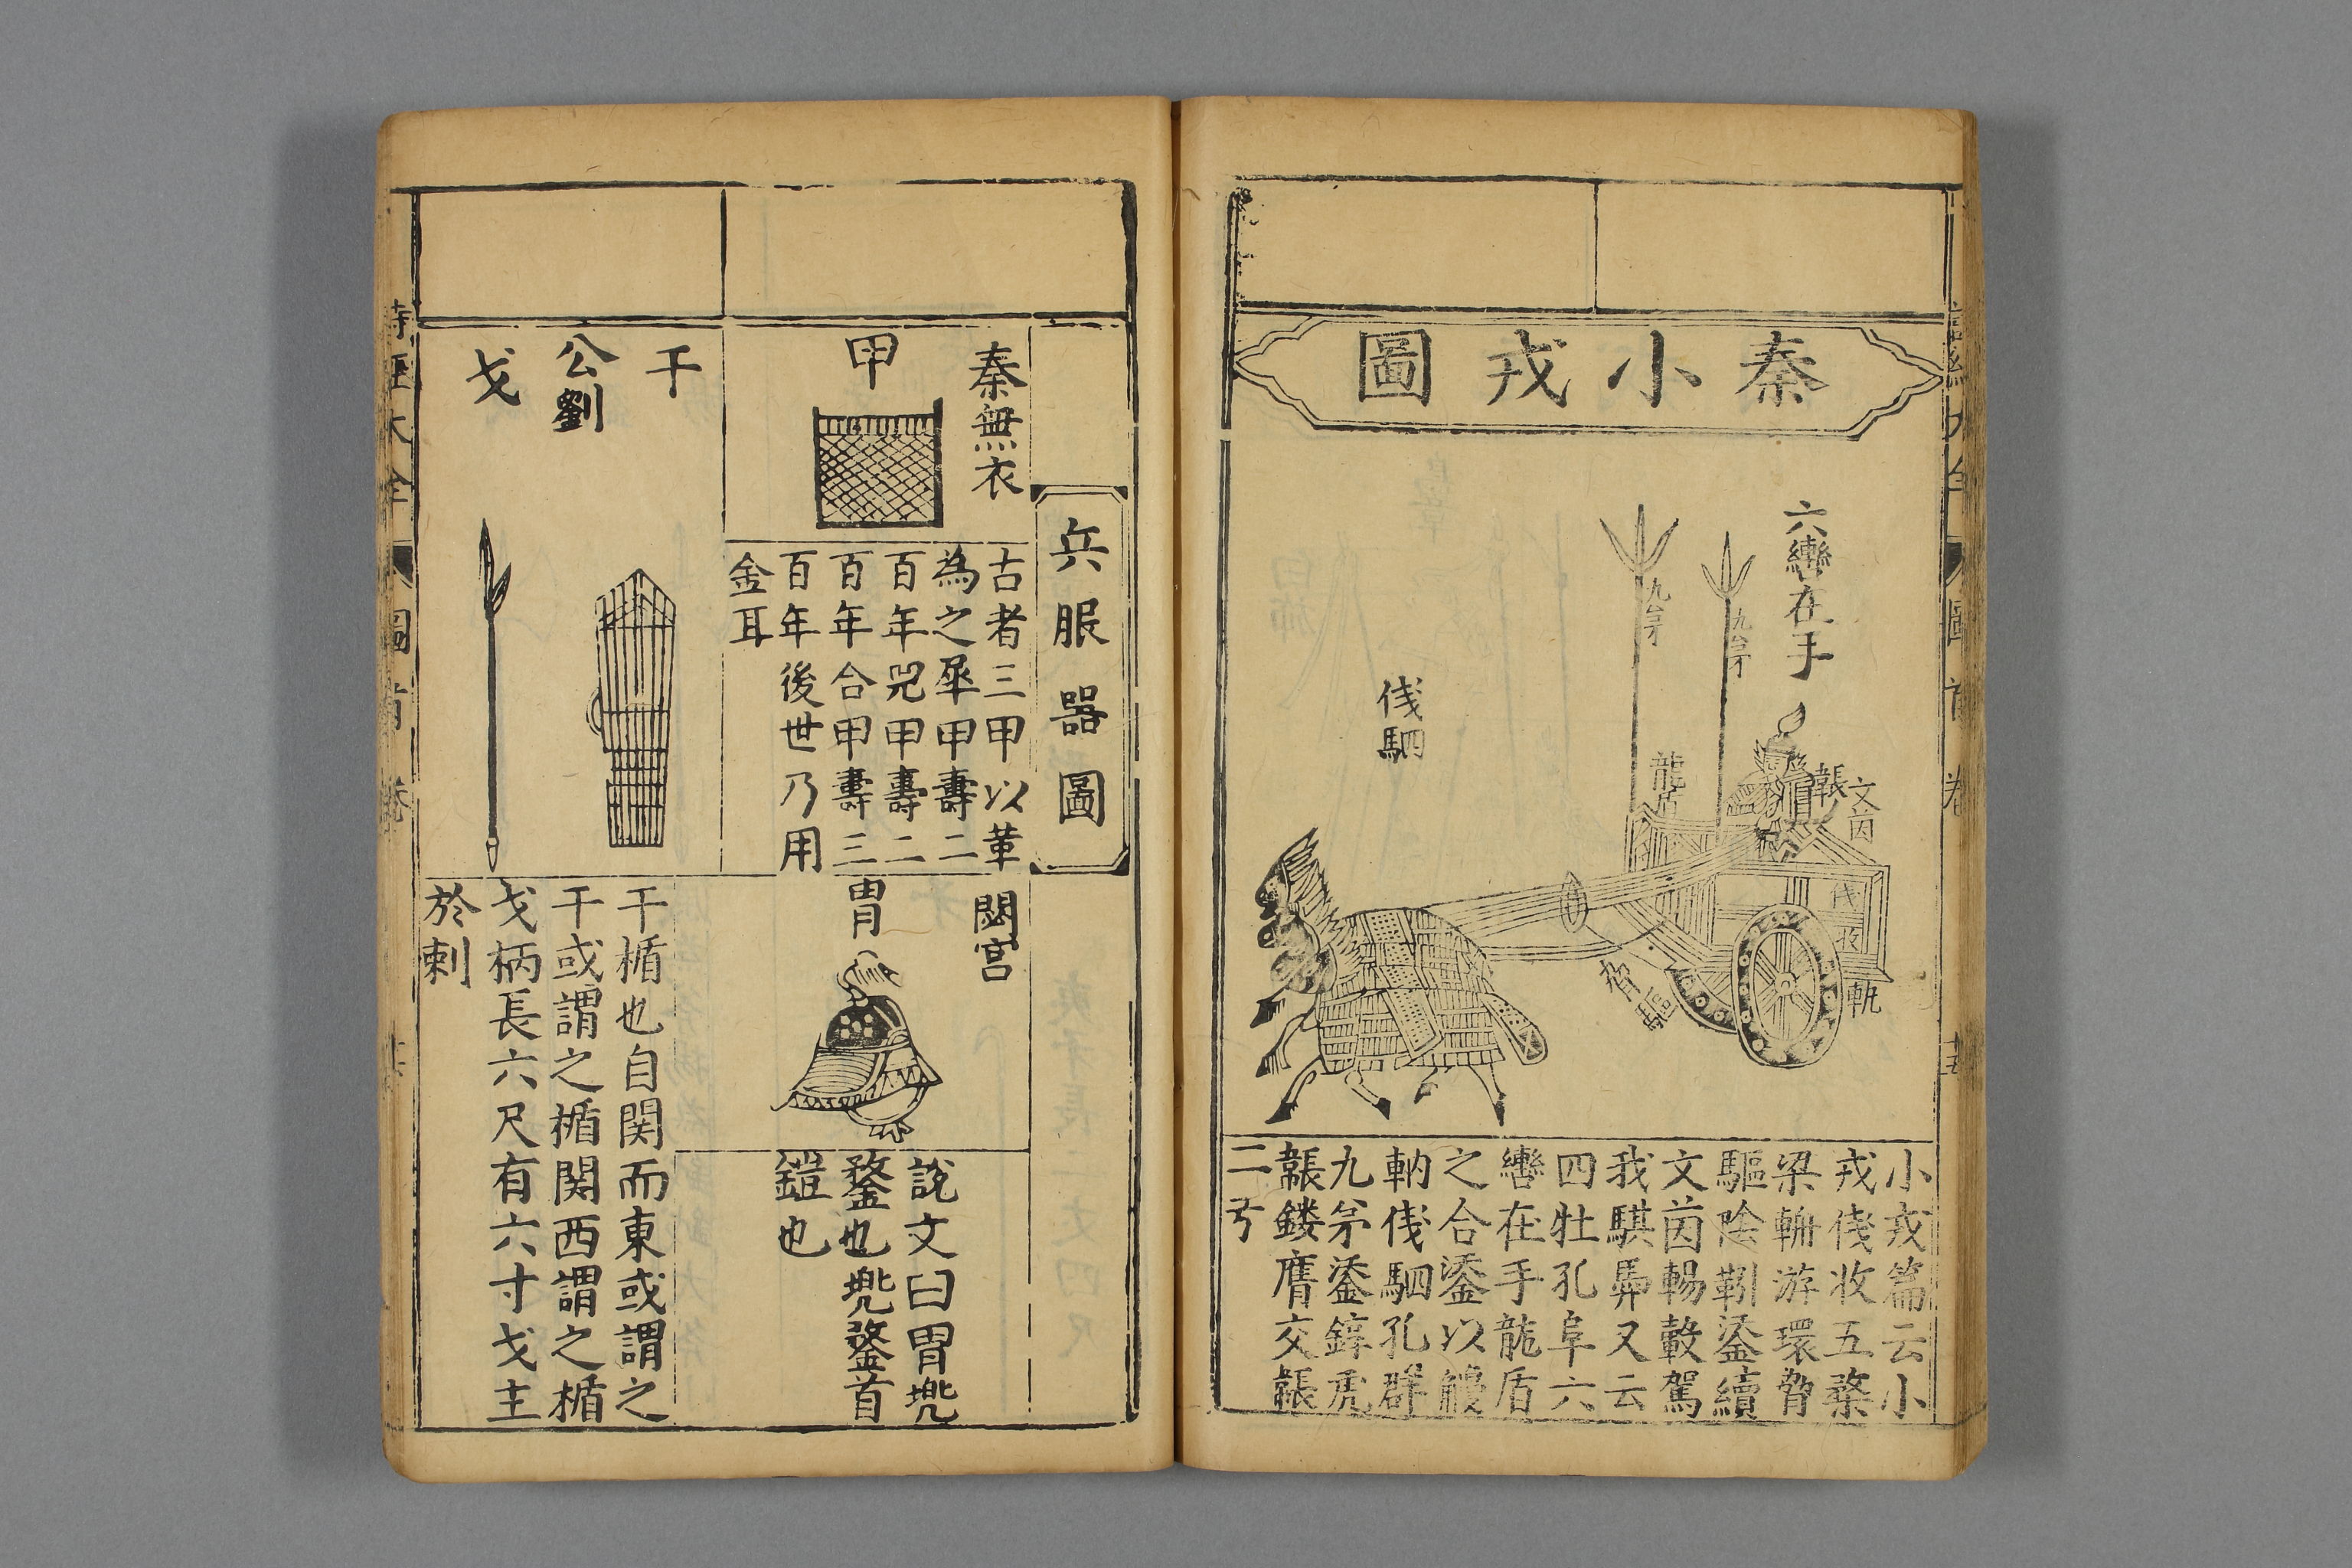 秦小戎圖
六轡在手
厹矛
厹矛
俴駟
龍盾
韔
文茵
俴收
軌
脅驅
小戎篇云小
戎俴收五楘
梁輈游環脅
驅陰靷鋈續
文茵暢轂駕
我騏馵又云
四牡孔阜六
轡在手龍盾
之合鋈以觼
軜俴駟孔群
厹矛鋈錞虎
韔鏤膺交韔
二弓
兵服器圖
秦無衣
甲
古者三甲以革
為之犀甲壽二
百年兕甲壽二
百年合甲壽三
百年後世乃用
金耳
閟宮
冑
說文曰冑兠
鍪也兠鍪首
鎧也
干
公劉
戈
干楯也自関而東或謂之
干或謂之楯関西謂之楯
戈柄長六尺有六寸戈主
於刺
詩經大全
圖
首卷